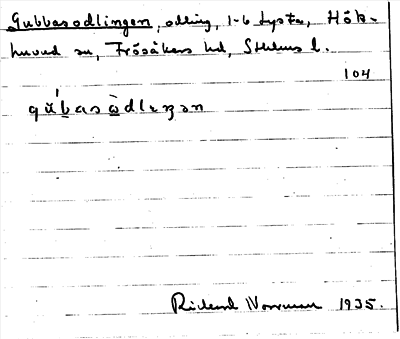 Gubbasodlingen, odling, 1-6 Lysta, Hök-
huvud sn, Frösåkers hd, Sthlms l.
104
gu̇́basὰdlɩŋən
Rickard Norrman 1935.